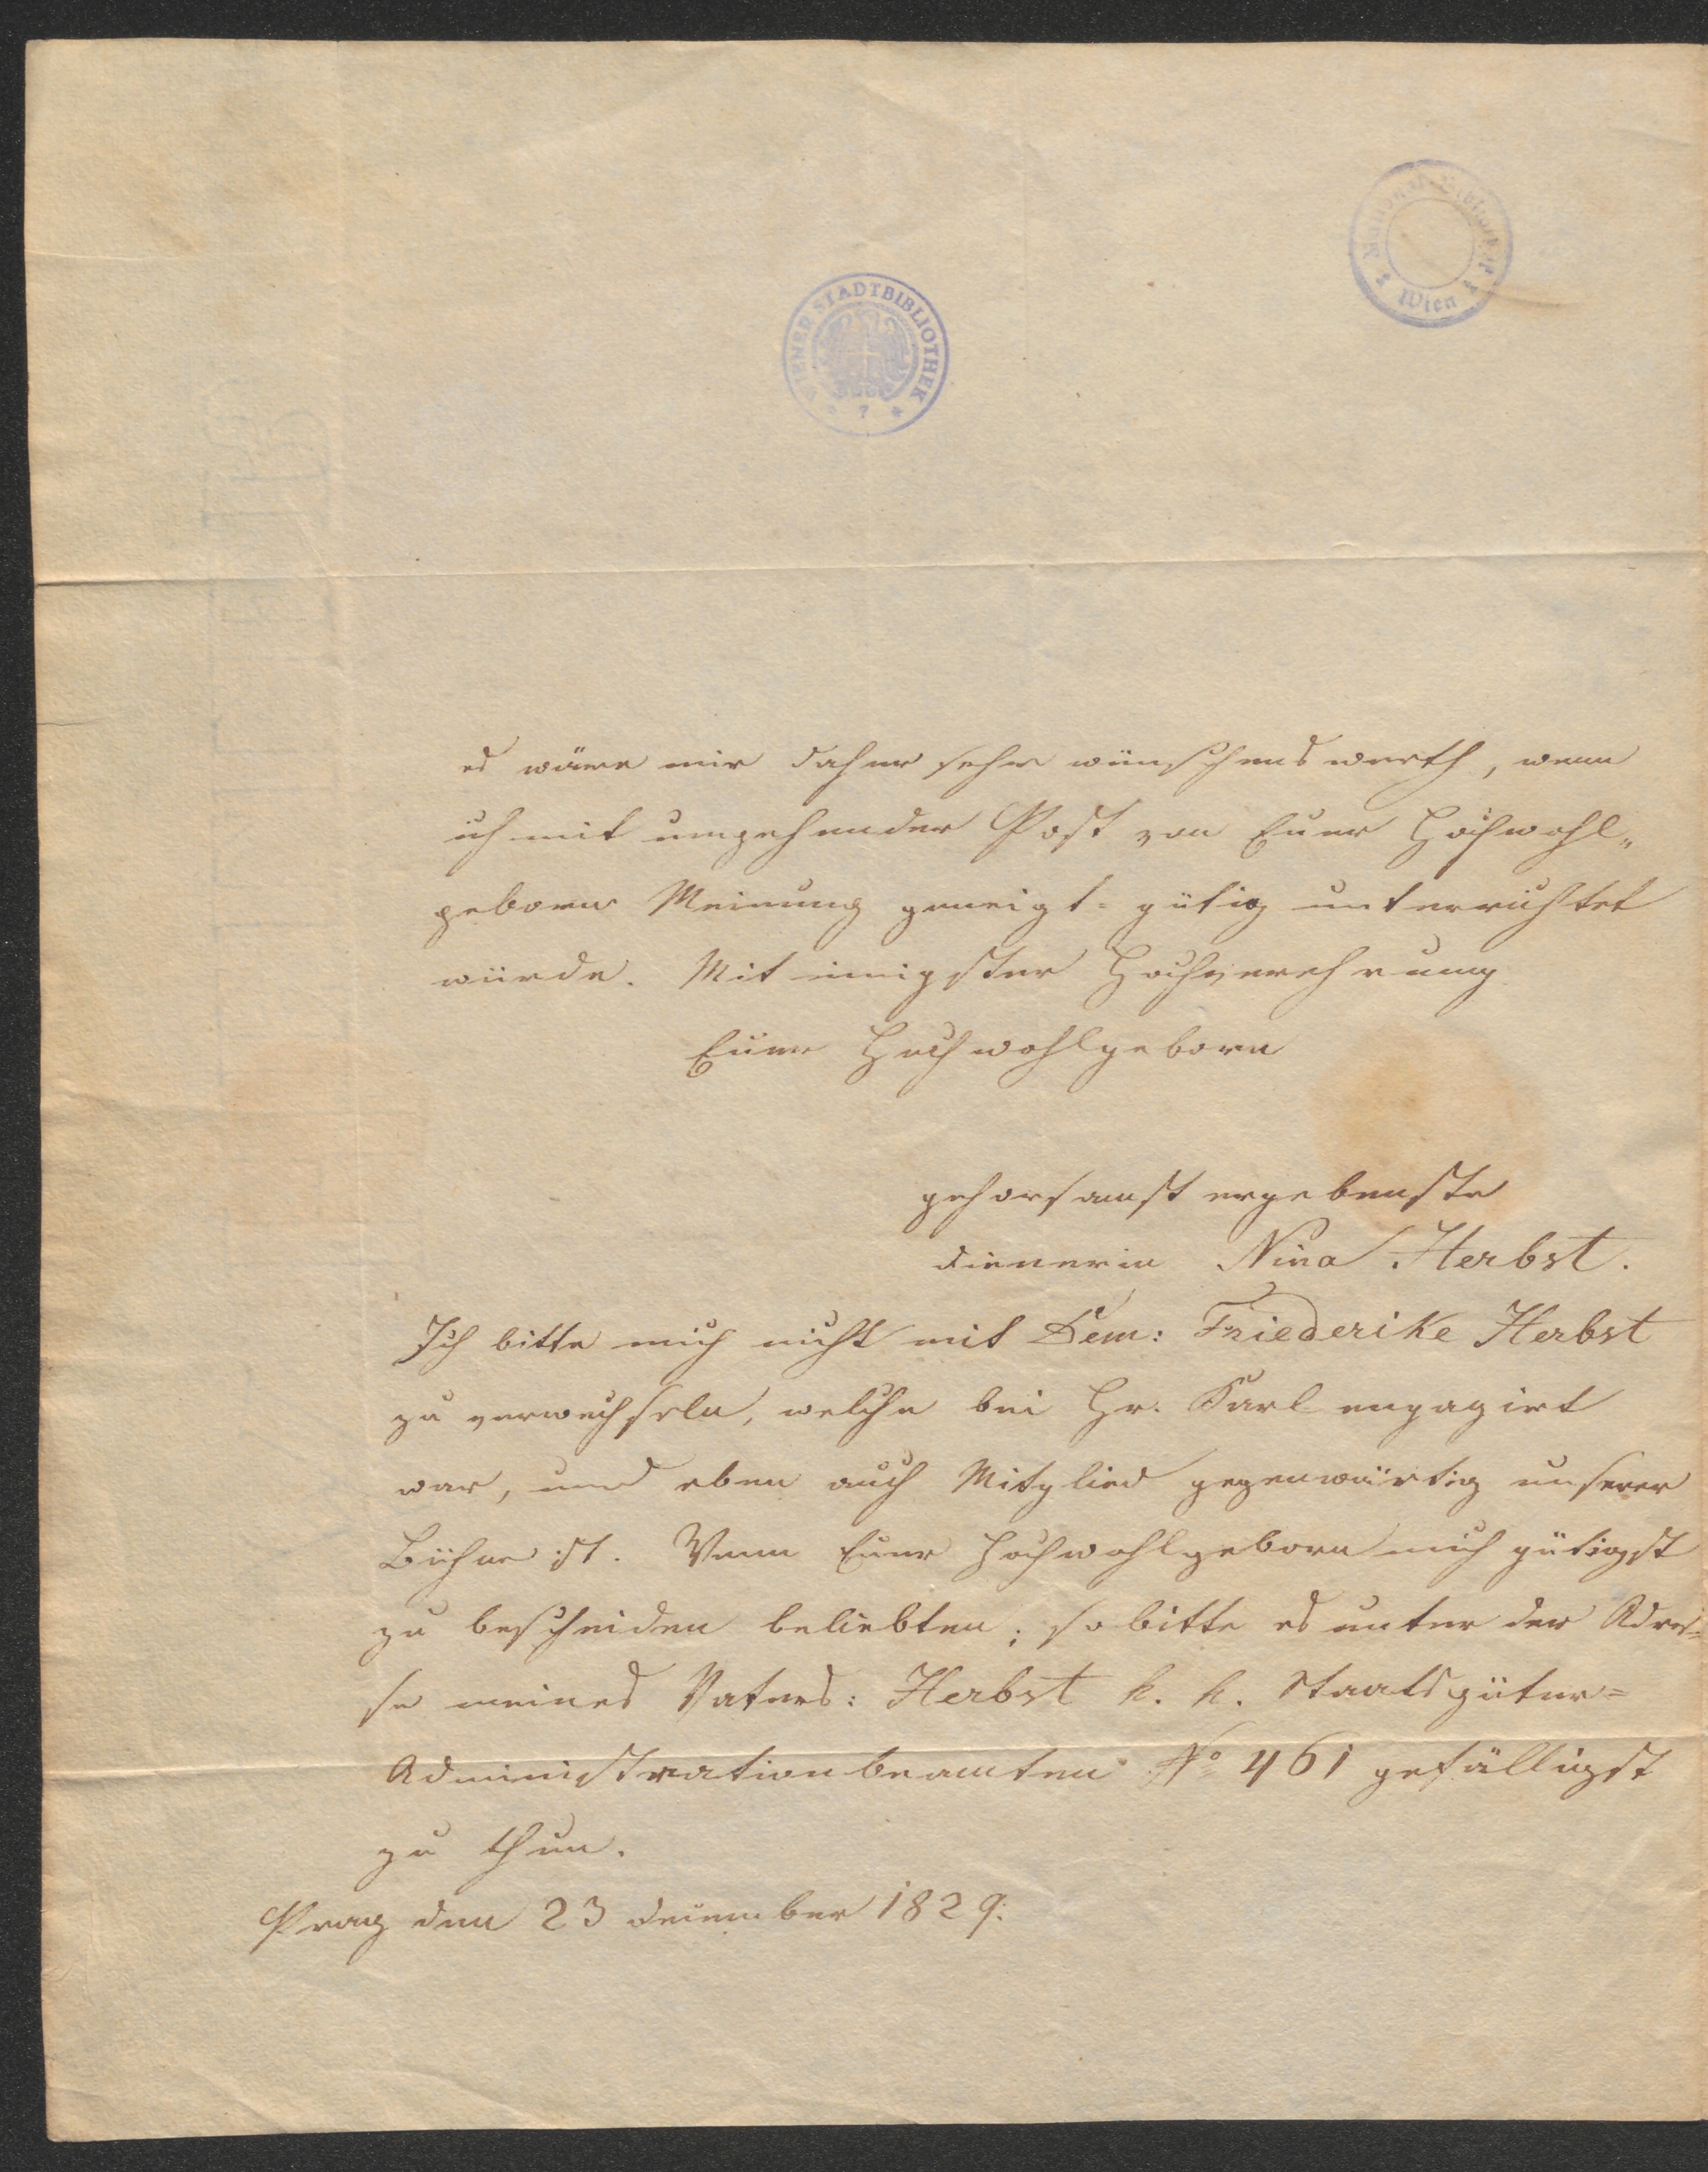 National-Bibliothek
Wien
WIENER STADTBIBLIOTHEK
* 7 *
es wäre mir daher sehr wünschenswerth, wenn
ich mit umgehender Post von Euer Hochwohl„
geboren Meinung geneigt-gütig unterrichtet
würde. Mit innigster Hochverehrung
Euer Hochwohlgeboren
gehorsamst ergebenste
dienerin Nina Herbst.
Ich bitte mich nicht mit Dem: Friederike Herbst
zu verwechseln, welche bei Hr. Karl engagirt
war, und eben auch Mitglied gegenwärtig unserer
Bühne ist. Wenn Euer Hochwohlgeboren mich gütigst
zu bescheiden beliebten; so bitte es unter der Adres=
se meines Vaters: Herbst k. k. Staatsgüter=
Administrationbeamten No 461 gefälligst
zu thun.
Prag den 23 december 1829.